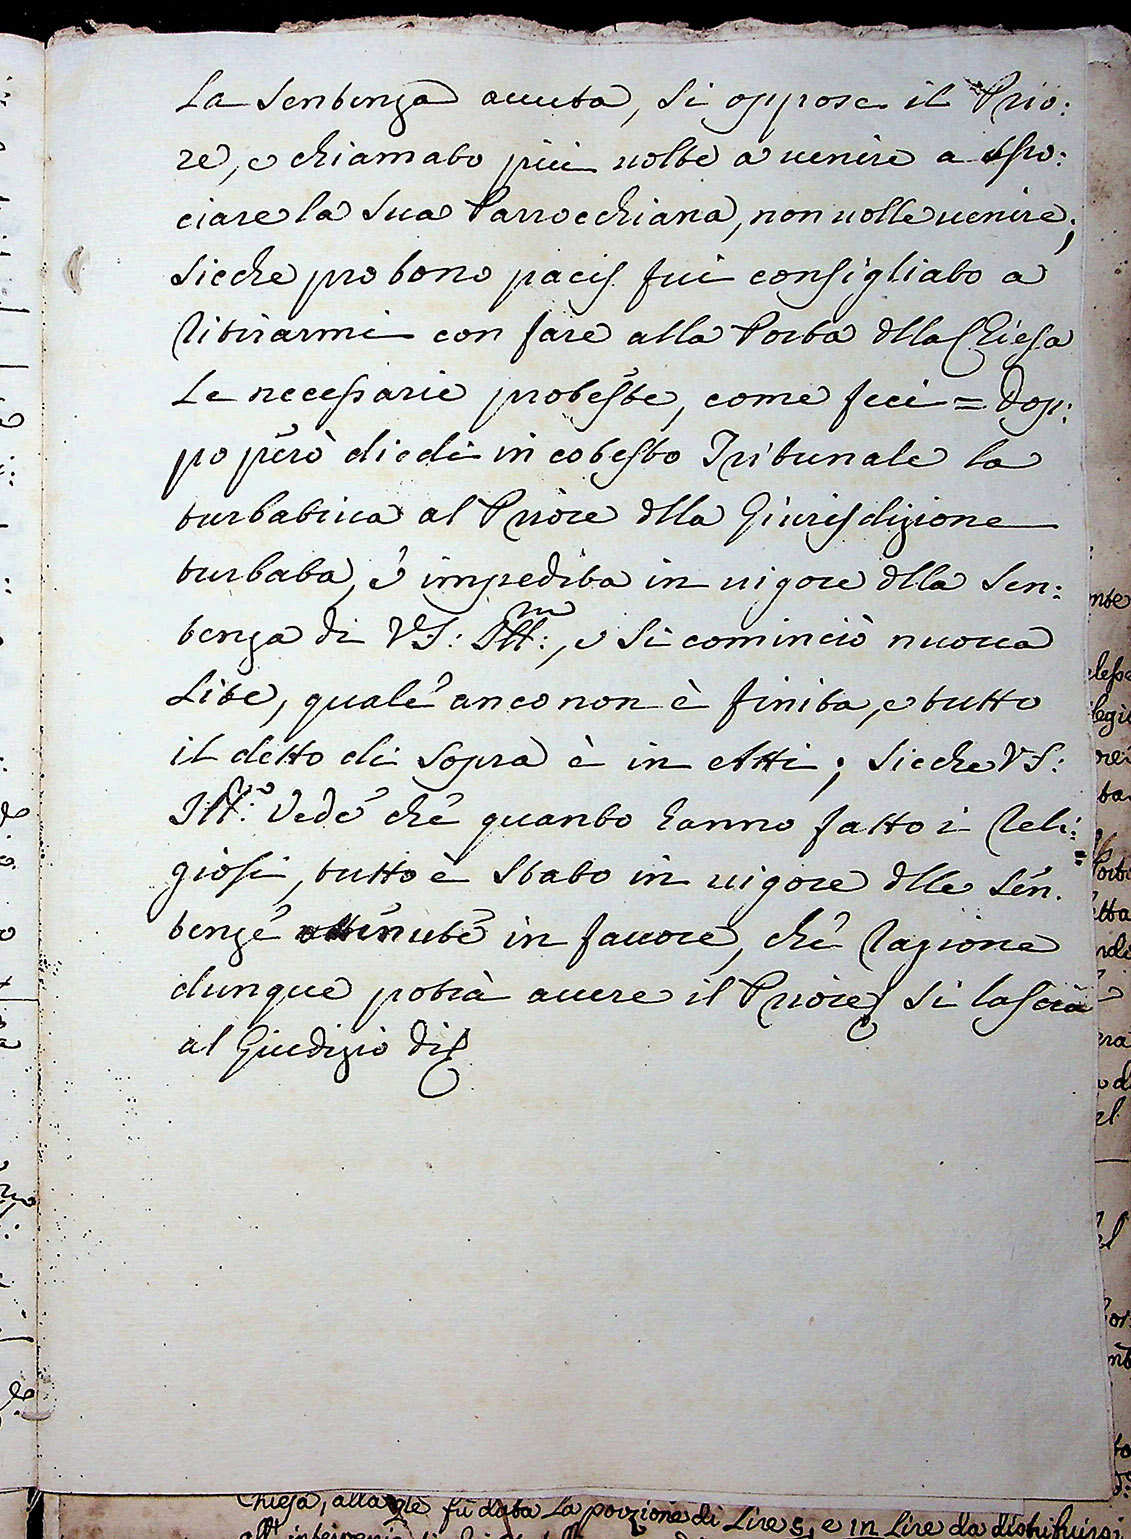 La Sentenza auuta, si oppose il Prio:
re, e chiamato piu uolte a uenire a asso:
ciare la sua Parrocchiana, non uolle uenire;
sicche pro bono pacis fui consigliato a
ritirarmi con fare alla Porta dlla Chiesa
le necessarie proteste, come feci = Dop:
po però diedi in cotesto Tribunale la
turbatiua al Priore dlla Giurisdizione
turbata, é impedita in uigore dlla Sen:
tenza di V.S: Ill:ma, e si cominciò nuoua
Lite, quale anco non è finita, e tutto
il detto di sopra è in Atti; sicche VS:
Ill:ma Vede che quanto hanno fatto i Reli:
giosi, tutto è stato in uigore dlle Sen:
tenze ottenute in fauore, che ragione
dunque potrà auere il Priore si lascia
al Giudizio di
Chiesa, alla qle fù data la porzione di Lire 5, e in Lire da distribuirsi